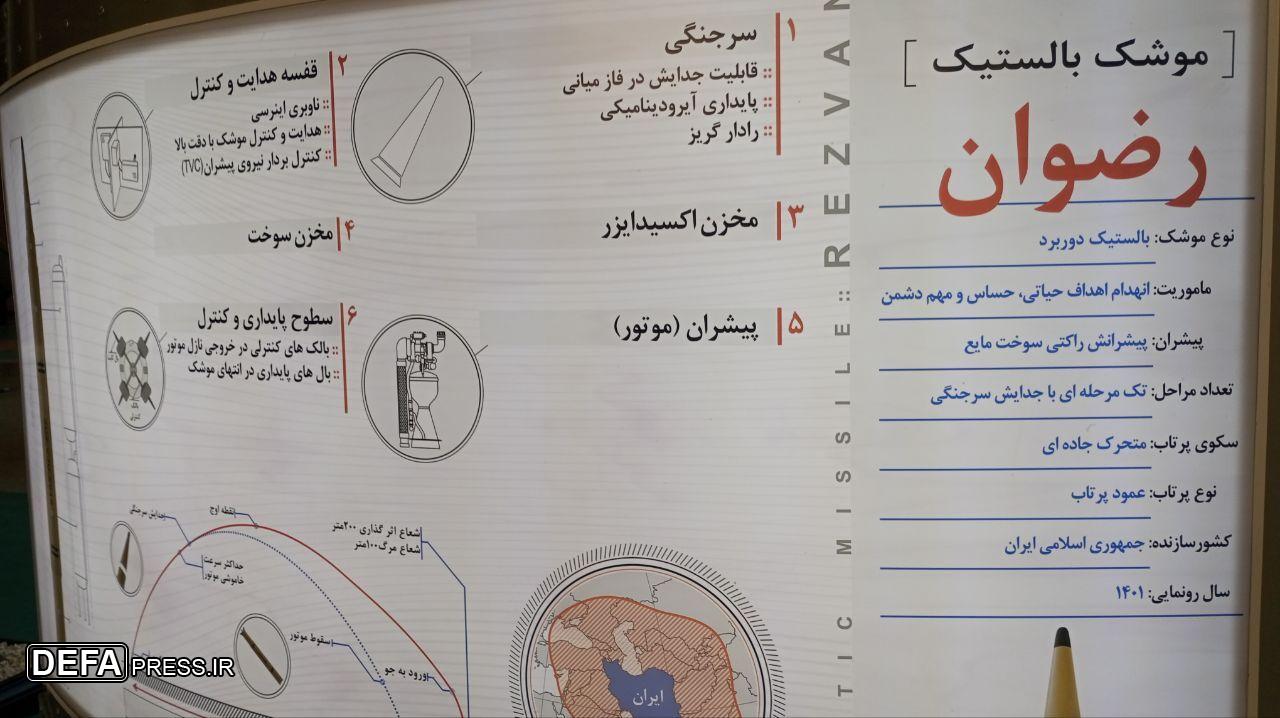 [ موشک بالستیک ]
رضوان
نوع موشک: بالستیک دوربرد
ماموریت: انهدام اهداف حیاتی، حساس و مهم دشمن
پیشران: پیشرانش راکتی سوخت مایع
تعداد مراحل: تک مرحله ای با جدایش سرجنگی
سکوی پرتاب: متحرک جاده ای
نوع پرتاب: عمود پرتاب
کشورسازنده: جمهوری اسلامی ایران
سال رونمایی: ۱۴۰۱
TIC MISSILE :: REZVAN
۱ سرجنگی
:: قابلیت جدایش در فاز میانی
:: پایداری آیرودینامیکی
:: رادار گریز
۲ قفسه هدایت و کنترل
:: ناوبری اینرسی
:: هدایت و کنترل موشک با دقت بالا
:: کنترل بردار نیروی پیشران(TVC)
۳ مخزن اکسیدایزر
۴ مخزن سوخت
۵ پیشران (موتور)
۶ سطوح پایداری و کنترل
:: بالک های کنترلی در خروجی نازل موتور
:: بال های پایداری در انتهای موشک
نقطه اوج
جدایش سرجنگی
حداکثر سرعت
خاموشی موتور
شعاع اثر گذاری ۲۰۰متر
شعاع مرگ۱۰۰متر
سقوط موتور
ورود به جو
ایران
DEFAPRESS.IR